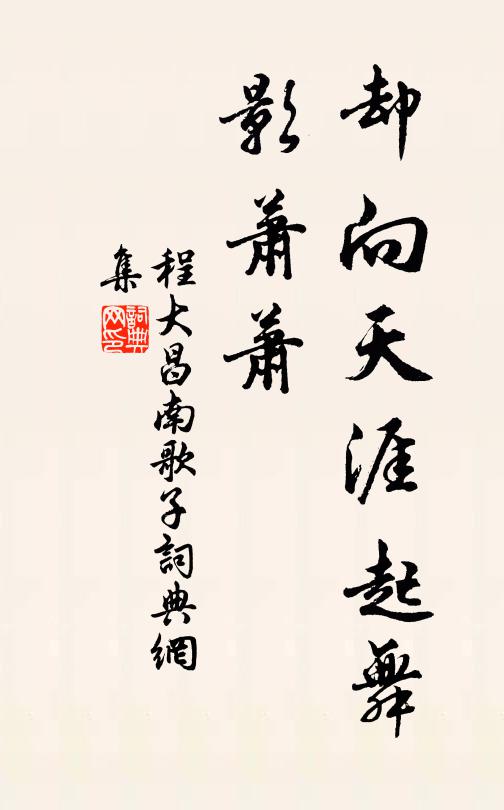 却向天涯起舞
影蕭蕭
程大昌南歌子詞典網
集
詞典
网印